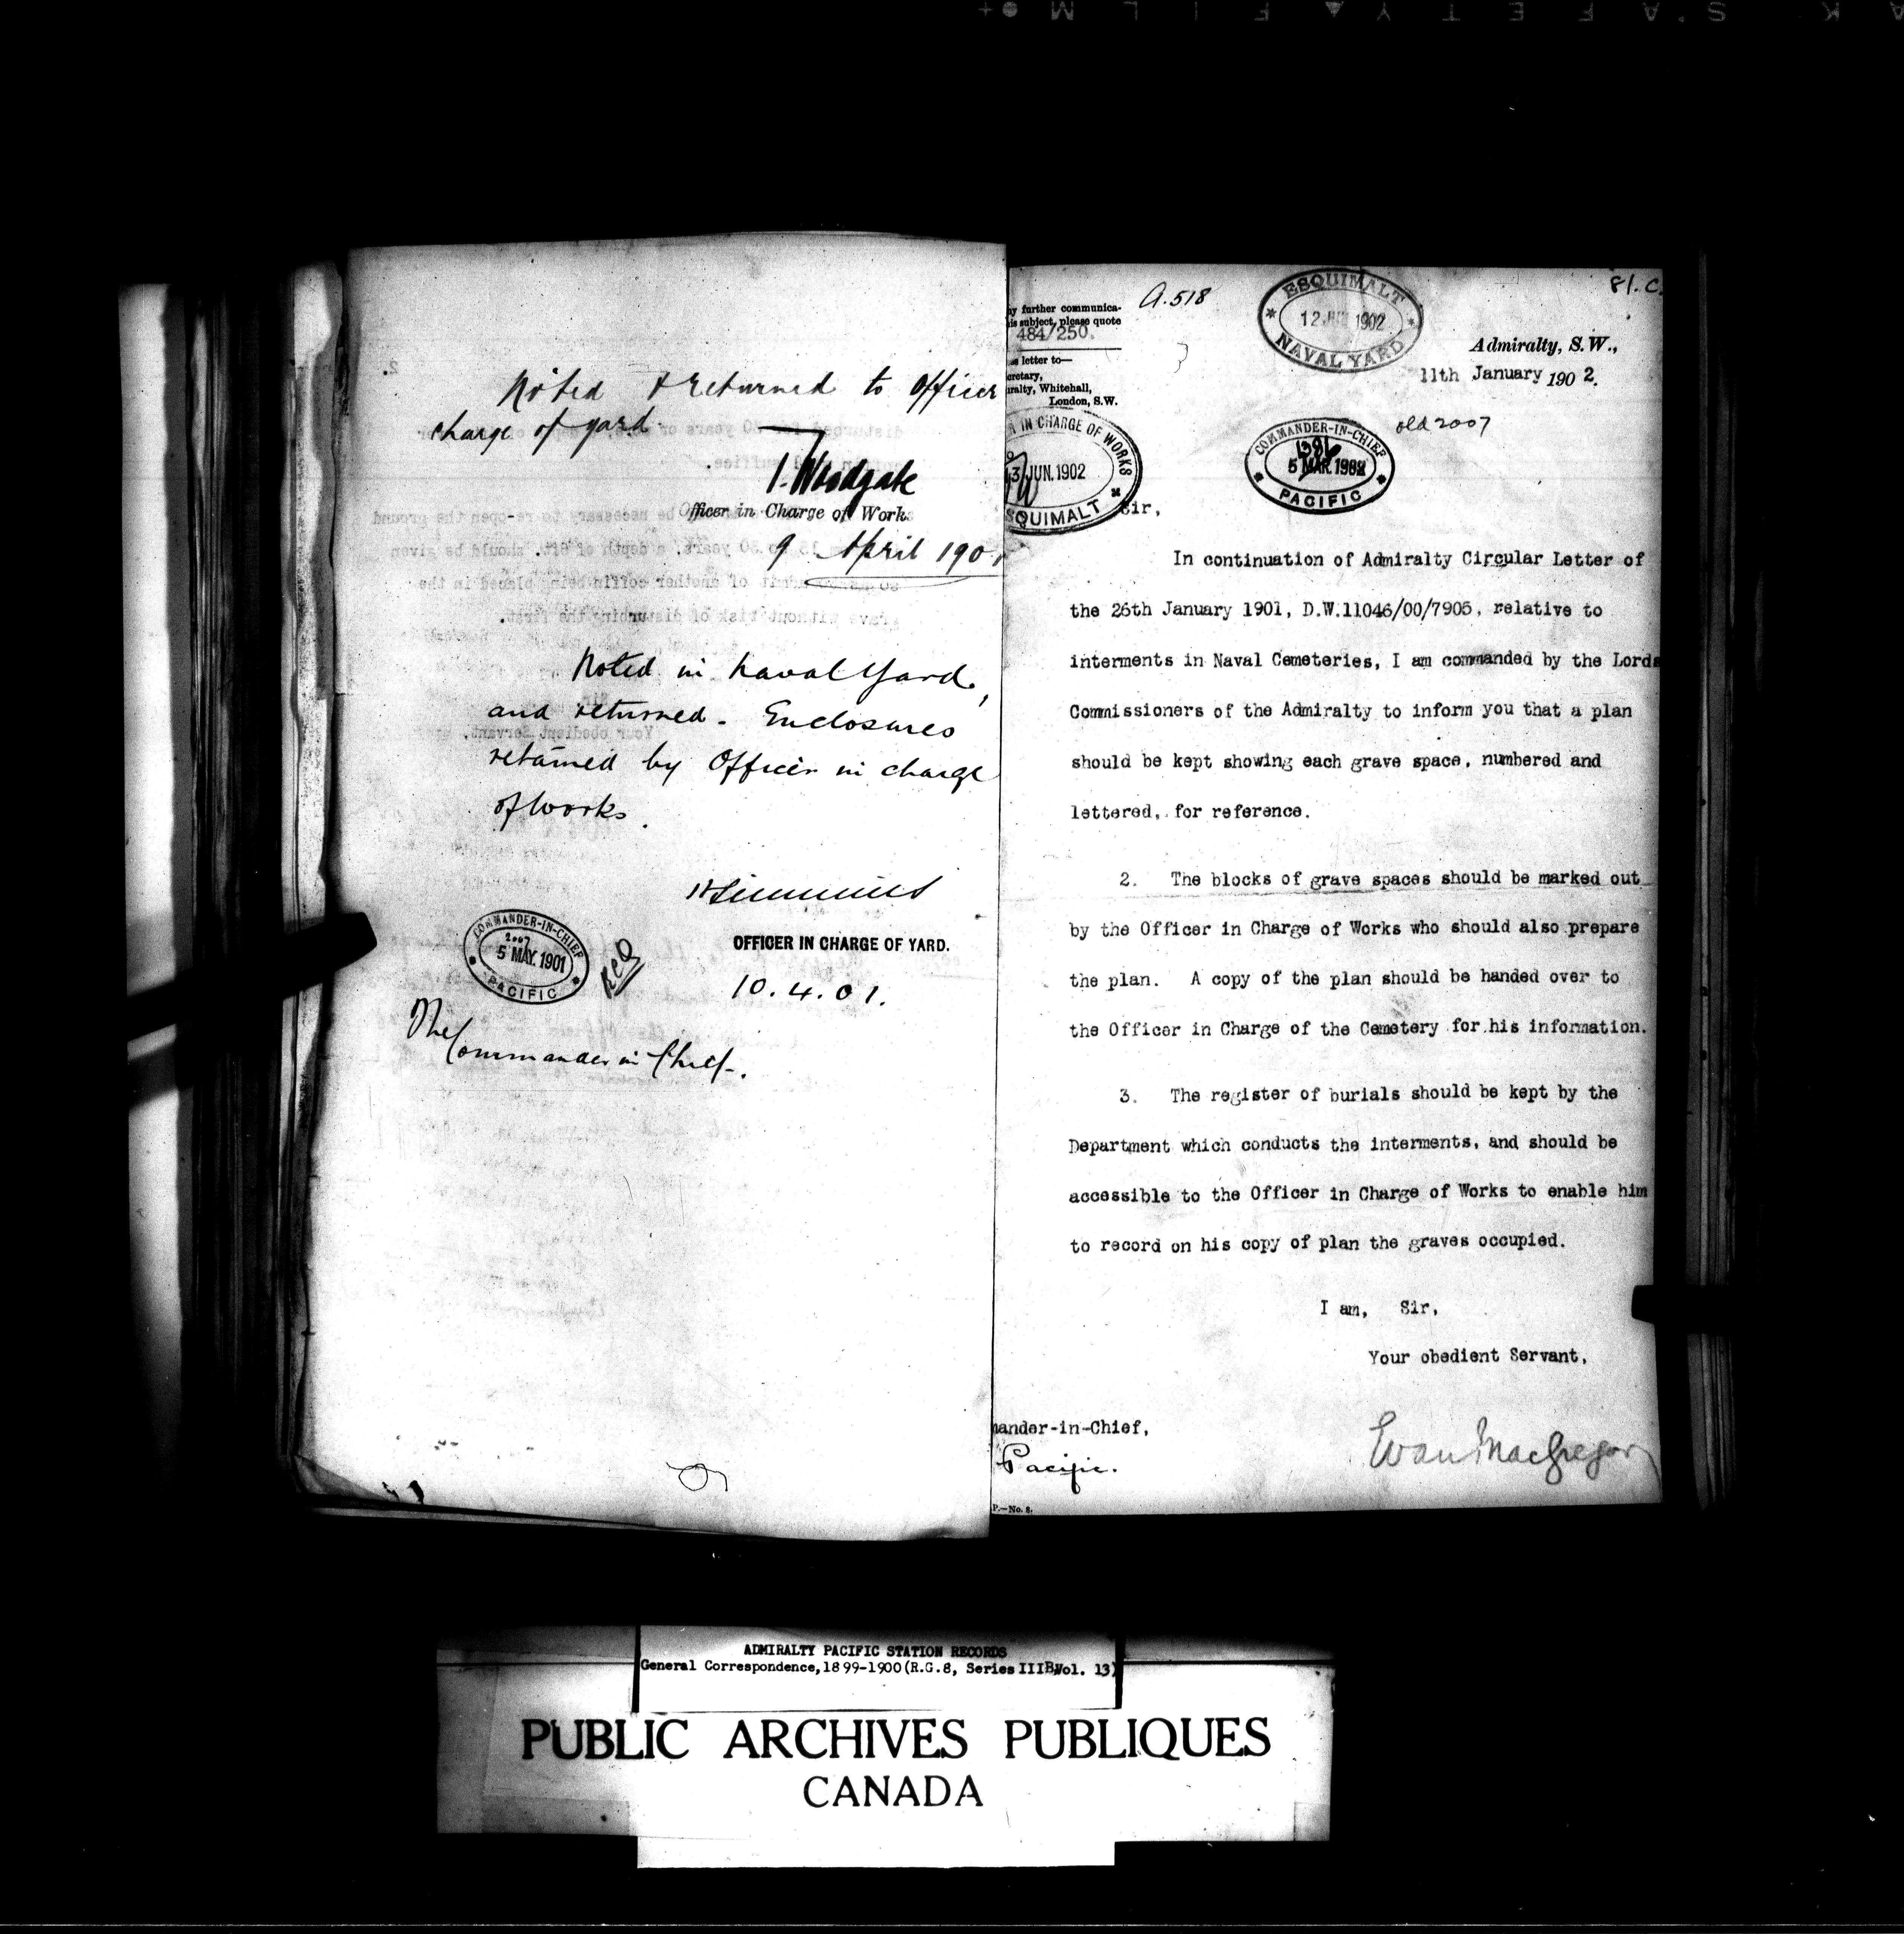 Noted & returned to Officer
charge of yard
Woodgate
Officer in Charge of Works
9 April 190
Noted in Naval Yard,
and returned. Enclosures
retained by Officer in charge
of works.
OFFICER IN CHARGE OF YARD.
10.4.01.
COMMANDER-IN-CHIEF
2007
5 MAY. 1901
PACIFIC
The Commander in Chief.
81.C.
A.518
ESQUIMALT
12 1902
NAVAL YARD
ny further communica-
his subject, please quote
484/250.
letter to—
cretary,
iralty, Whitehall,
London, S.W.
Admiralty, S.W.,
11th January 1902.
old 2007
R IN CHARGE OF WORKS
3 JUN. 1902
SQUIMALT
COMMANDER-IN-CHIEF
1386
5 MAR. 1902
PACIFIC
Sir,
In continuation of Admiralty Circular Letter of
the 26th January 1901, D.W.11046/00/7905, relative to
interments in Naval Cemeteries, I am commanded by the Lords
Commissioners of the Admiralty to inform you that a plan
should be kept showing each grave space, numbered and
lettered, for reference.
2. The blocks of grave spaces should be marked out
by the Officer in Charge of Works who should also prepare
the plan. A copy of the plan should be handed over to
the Officer in Charge of the Cemetery for his information.
3. The register of burials should be kept by the
Department which conducts the interments, and should be
accessible to the Officer in Charge of Works to enable him
to record on his copy of plan the graves occupied.
I am, Sir,
Your obedient Servant,
Evan MacGregor
mander-in-Chief,
Pacific.
P.—No. 8.
ADMIRALTY PACIFIC STATION RECORDS
General Correspondence, 1899-1900 (R.G.8, Series IIIB, Vol. 13)
PUBLIC ARCHIVES PUBLIQUES
CANADA